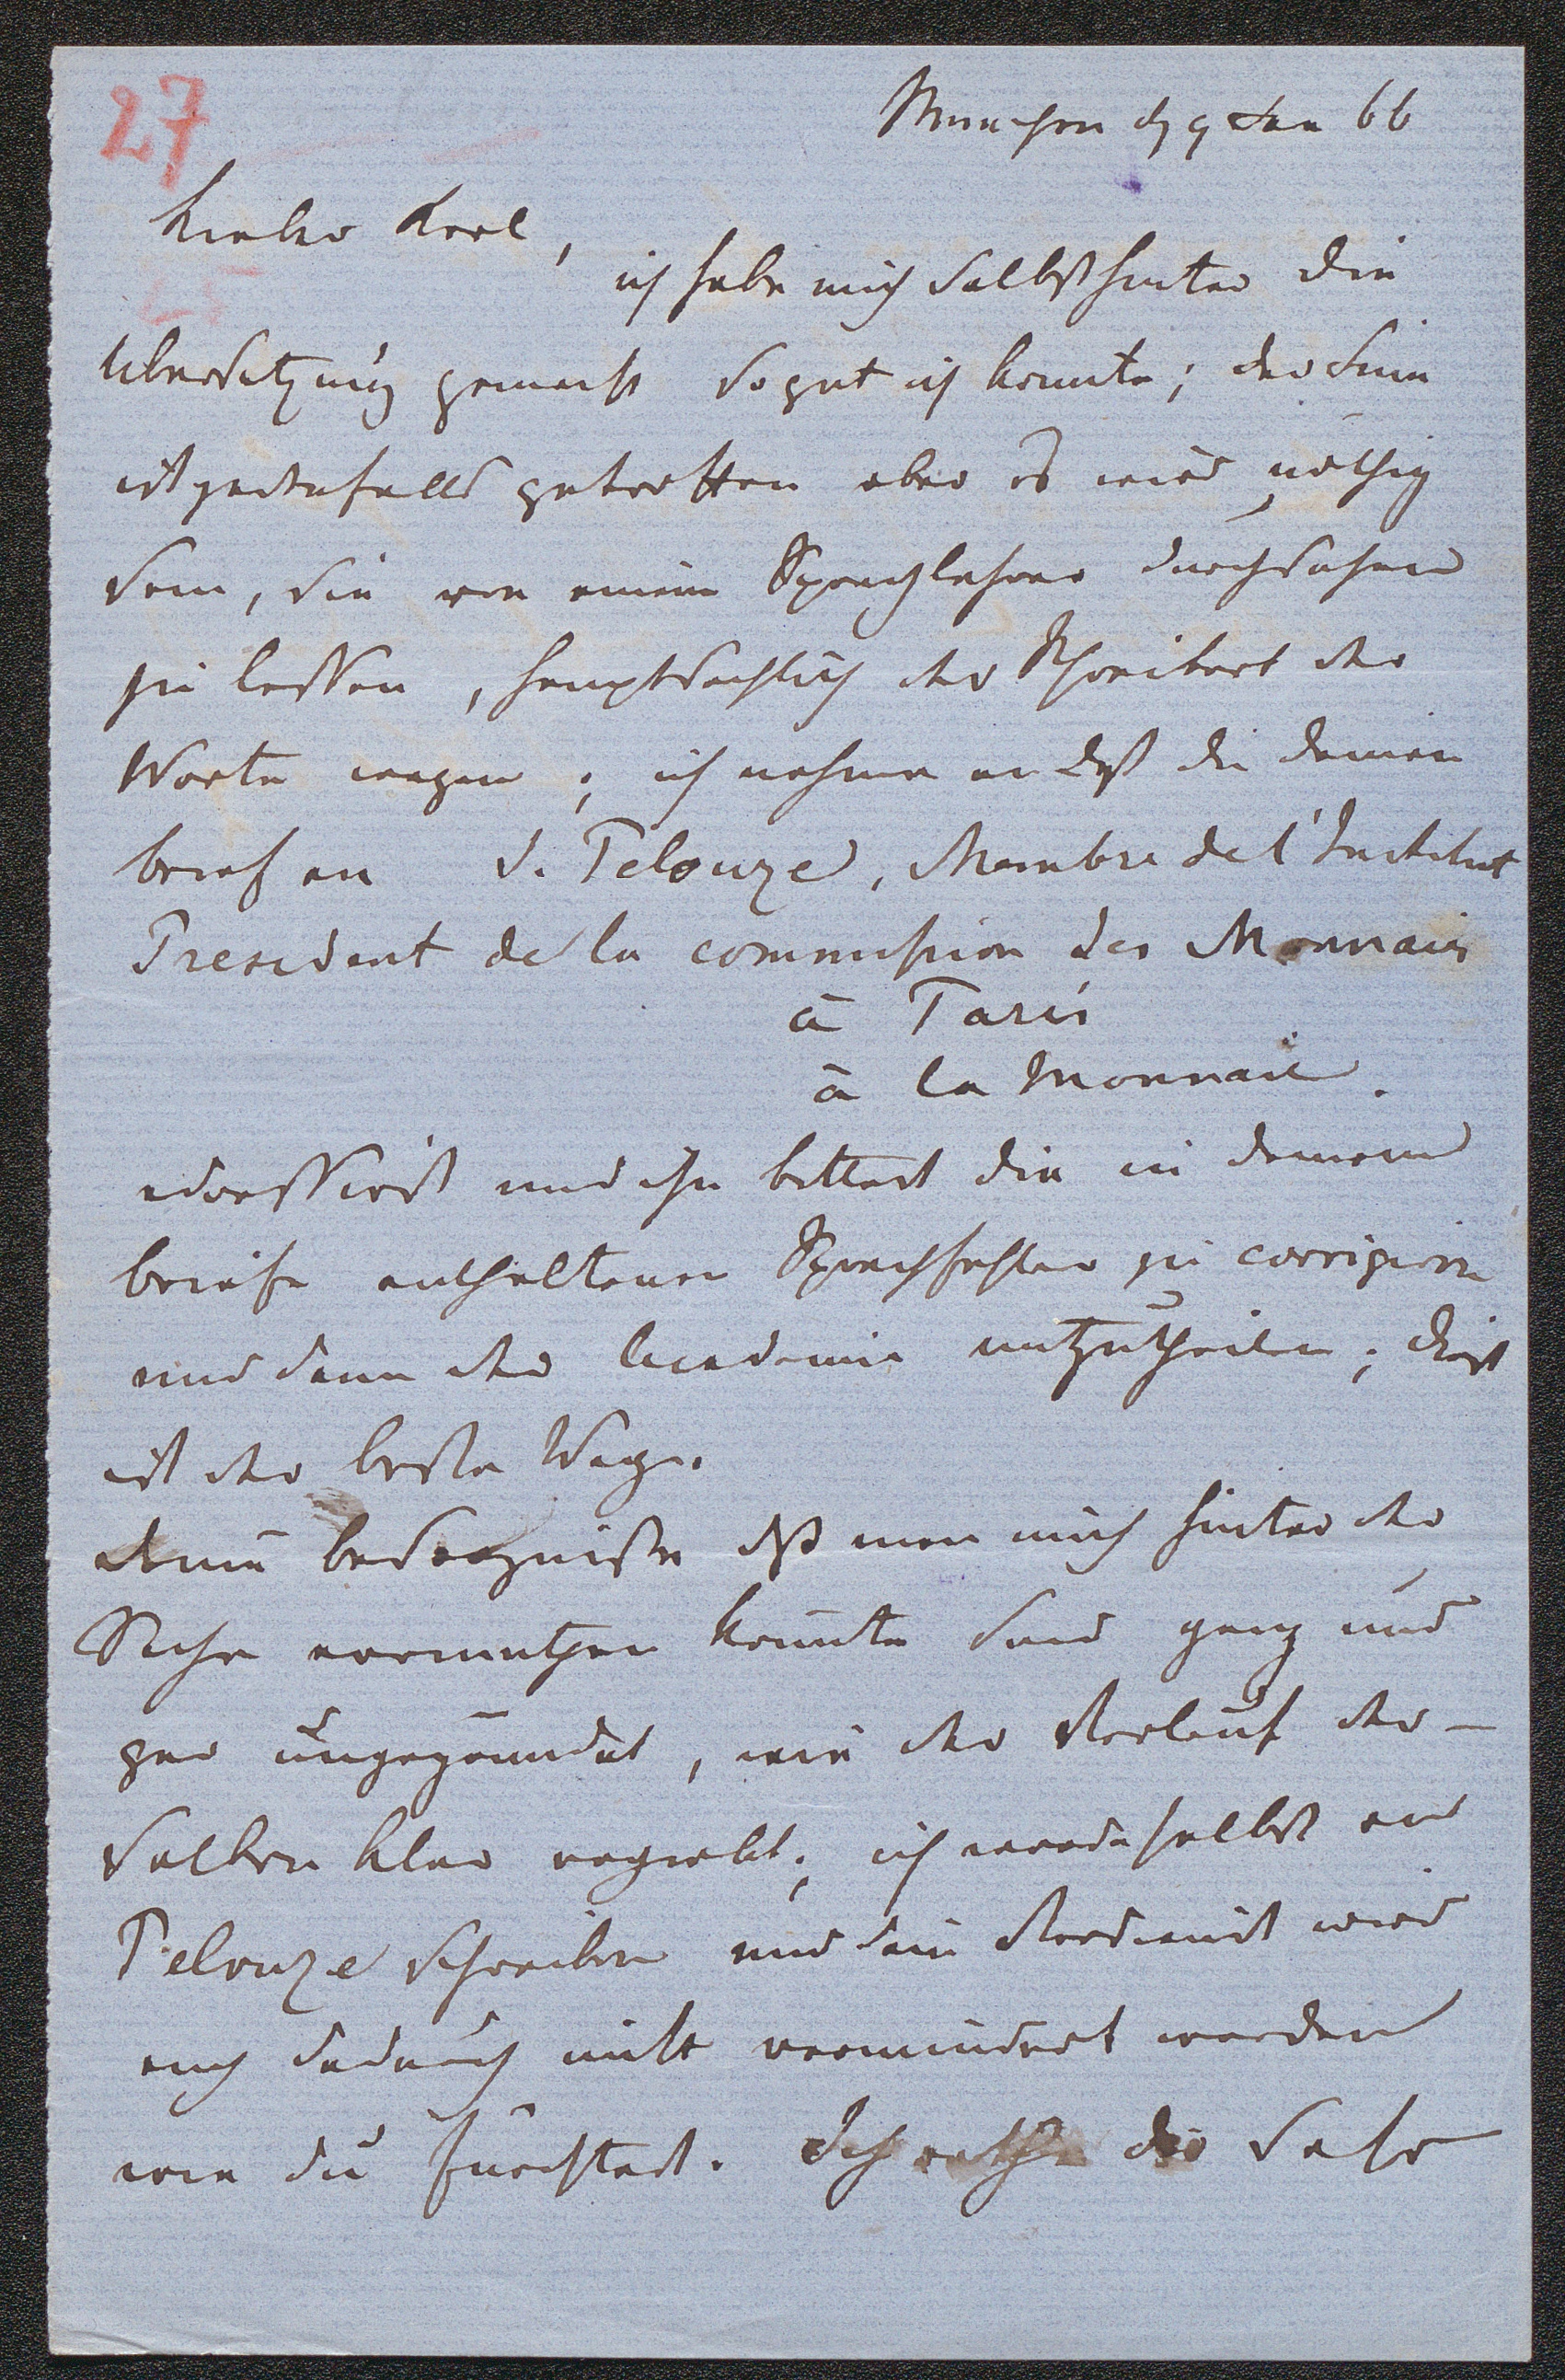 27
München d 9 Jan 66
Lieber Karl,
ich habe mich selbst hinter die
Übersetzung gemacht so gut ich konnte; der Sinn
ist jedenfalls getroffen aber es wird nöthig
sein, sie von einem Sprachlehrer durchsehen
zu lassen, hauptsächlich der Schreibart der
Worte wegen; ich nehme an daß du deinen
Brief an J. Pelouze, Membre de l'Institut
President de la commission des Monnaies
à Paris
à la Monnaie.
adressirst und ihn bittest die in deinem
Briefe enthaltenen Sprachfehler zu corrigiren
und dann der Academie mitzutheilen; dieß
ist der beste Weg.
Deine Besorgnisse daß man mich hinter der
Sache vermuthen könnte sind ganz und
gar ungegründet, wie der Verlauf der-
selben klar ergiebt; ich werde selbst an
Pelouze schreiben und dein Verdienst wird
auch dadurch nicht vermindert werden
wie du fürchtest. Ich rathe dir sehr